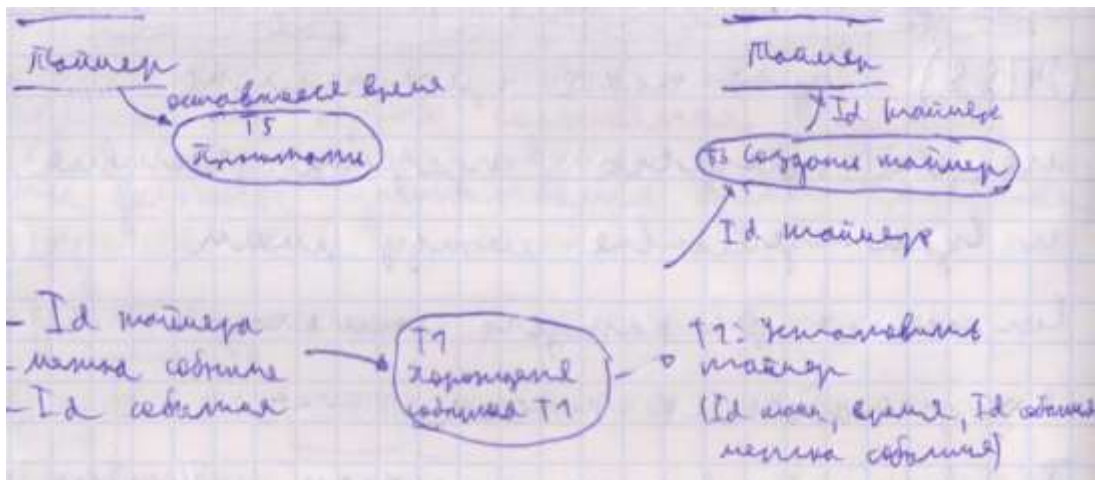 Таймер
оставшееся время
T5
Таймер
Id таймер
создание таймер
Id таймера
- Id таймера
- метка событие
- Id события
T1
порождение
события T1
T1: Установить
таймер
(Id тайм, время, Id события
метка события)